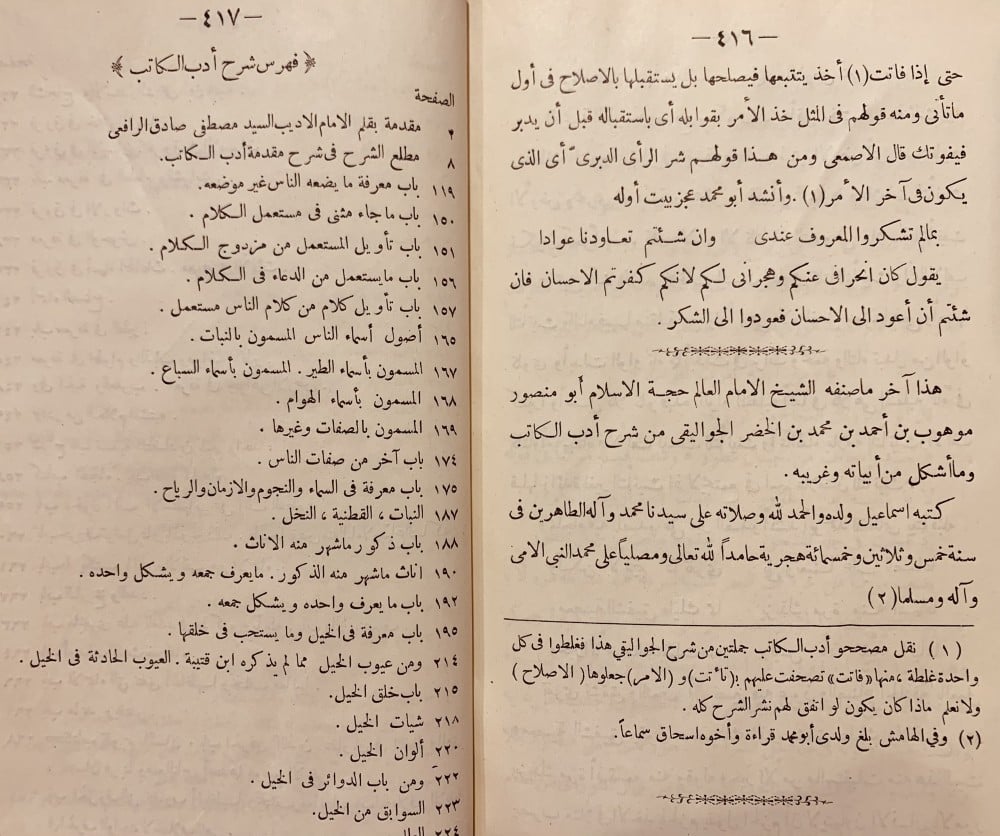 —٤١٦—
حتى إذا فاتت (١) أخذ يتتبعها فيصلحها بل يستقبلها بالاصلاح فى أول
مأتأنى ومنه قولهم فى المثل خذ الأمر بقوابله أى باستقباله قبل أن يدبر
فيفوتك قال الاصمعى ومن هذا قولهم شر الرأى الدبرىّ أى الذى
يكون فى آخر الأمر (١) . وأنشد أبو محمد عجز بيت أوله
بمالم تشكروا المعروف عندى وان شئتم تعاودنا عوادا
يقول كان انحرافى عنكم وهجرانى لكم لانكم كفرتم الاحسان فان
شئتم أن أعود الى الاحسان فعودوا الى الشكر .
هذا آخر ماصنفه الشيخ الامام العالم حجة الاسلام أبو منصور
موهوب بن أحمد بن محمد بن الخضر الجواليقى من شرح أدب الكاتب
وماأشكل من أبياته وغريبه .
كتبه اسماعيل ولده والحمد لله وصلاته على سيدنا محمد وآله الطاهرين فى
سنة خمس وثلاثين وخمسمائة هجرية حامداً لله تعالى ومصلياً على محمد النبى الامى
وآله ومسلما (٢)
(١) نقل مصححو أدب الكاتب جملتين من شرح الجواليقي هذا فغلطوا فى كل
واحدة غلطة ، منها «فاتت» تصحفت عليهم بـ (تأتت) و (الامر) جعلوها (الاصلاح)
ولا نعلم ماذا كان يكون لو اتفق لهم نشر الشرح كله .
(٢) وفي الهامش بلغ ولدى أبو محمد قراءة وأخوه اسحاق سماعاً.
—٤١٧—
﴿ فهرس شرح أدب الكاتب ﴾
الصفحة
٢ مقدمة بقلم الامام الاديب السيد مصطفى صادق الرافعى
٨ مطلع الشرح فى شرح مقدمة أدب الكاتب.
١١٩ باب معرفة ما يضعه الناس غير موضعه.
١٥٠ باب ماجاء مثنى فى مستعمل الكلام .
١٥١ باب تأويل المستعمل من مزدوج الكلام .
١٥٦ باب مايستعمل من الدعاء فى الكلام .
١٥٧ باب تأويل كلام من كلام الناس مستعمل .
١٦٥ أصول أسماء الناس المسمون بالنبات .
١٦٧ المسمون بأسماء الطير . المسمون بأسماء السباع .
١٦٨ المسمون بأسماء الهوام .
١٦٩ المسمون بالصفات وغيرها .
١٧٤ باب آخر من صفات الناس .
١٧٥ باب معرفة فى السماء والنجوم والازمان والرياح.
١٨٧ النبات ، القطنية ، النخل .
١٨٨ باب ذكور ماشهر منه الاناث .
١٩٠ اناث ماشهر منه الذكور . مايعرف جمعه ويشكل واحده .
١٩٢ باب ما يعرف واحده ويشكل جمعه .
١٩٥ باب معرفة فى الخيل وما يستحب فى خلقها .
٢١٤ ومن عيوب الخيل مما لم يذكره ابن قتيبة . العيوب الحادثة فى الخيل .
٢١٥ باب خلق الخيل.
٢١٨ شيات الخيل .
٢٢٠ ألوان الخيل .
٢٢٢ ومن باب الدوائر فى الخيل .
٢٢٣ السوابق من الخيل.
٢٢٤